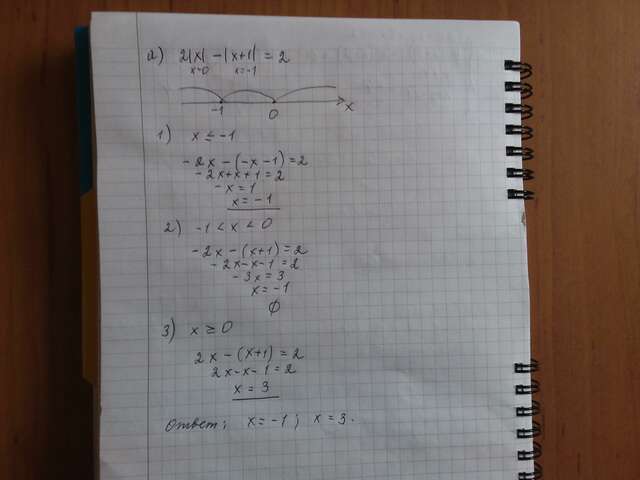 а) 2|x| - |x+1| = 2
x=0 x=-1
-1 0 x
1) x ≤ -1
-2x - (-x-1) = 2
-2x+x+1 = 2
-x = 1
x = -1
2) -1 < x < 0
-2x - (x+1) = 2
-2x-x-1 = 2
-3x = 3
x = -1
∅
3) x ≥ 0
2x - (x+1) = 2
2x-x-1 = 2
x = 3
Ответ: x = -1; x = 3.